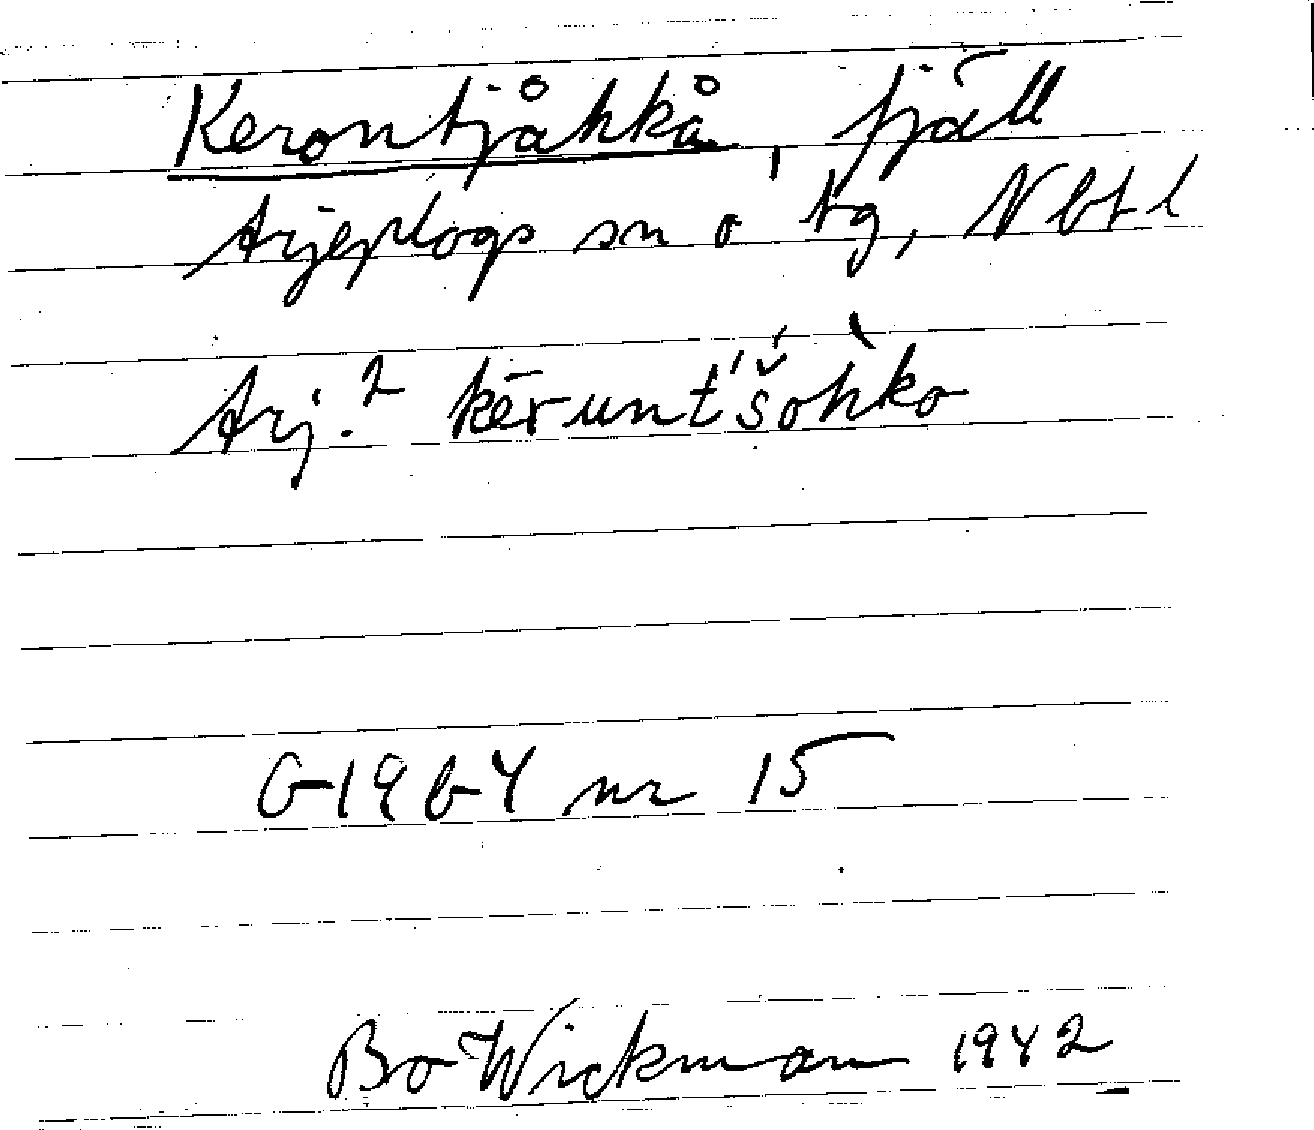 Kerontjåhkå, fjäll
Arjeplogs sn o tg, Nbt l
Arj.² kēruntʹšʹohko
G 19 b 4 nr 15
Bo Wickman 1942